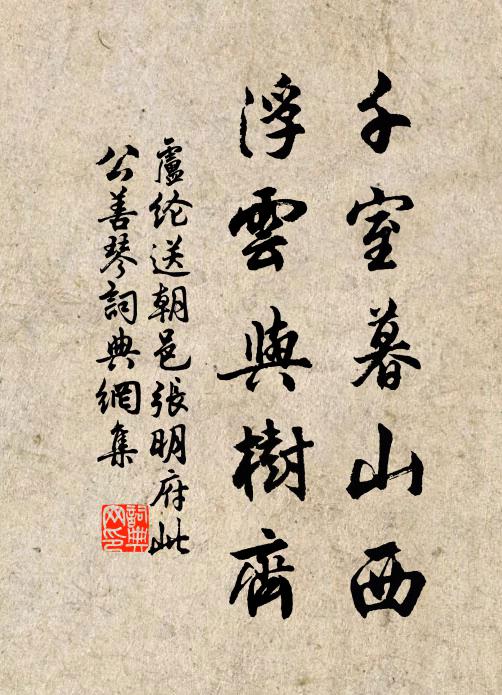 千室暮山西
浮雲與樹齊
盧纶送朝邑張明府此
公善琴詞典網集
詞典网印